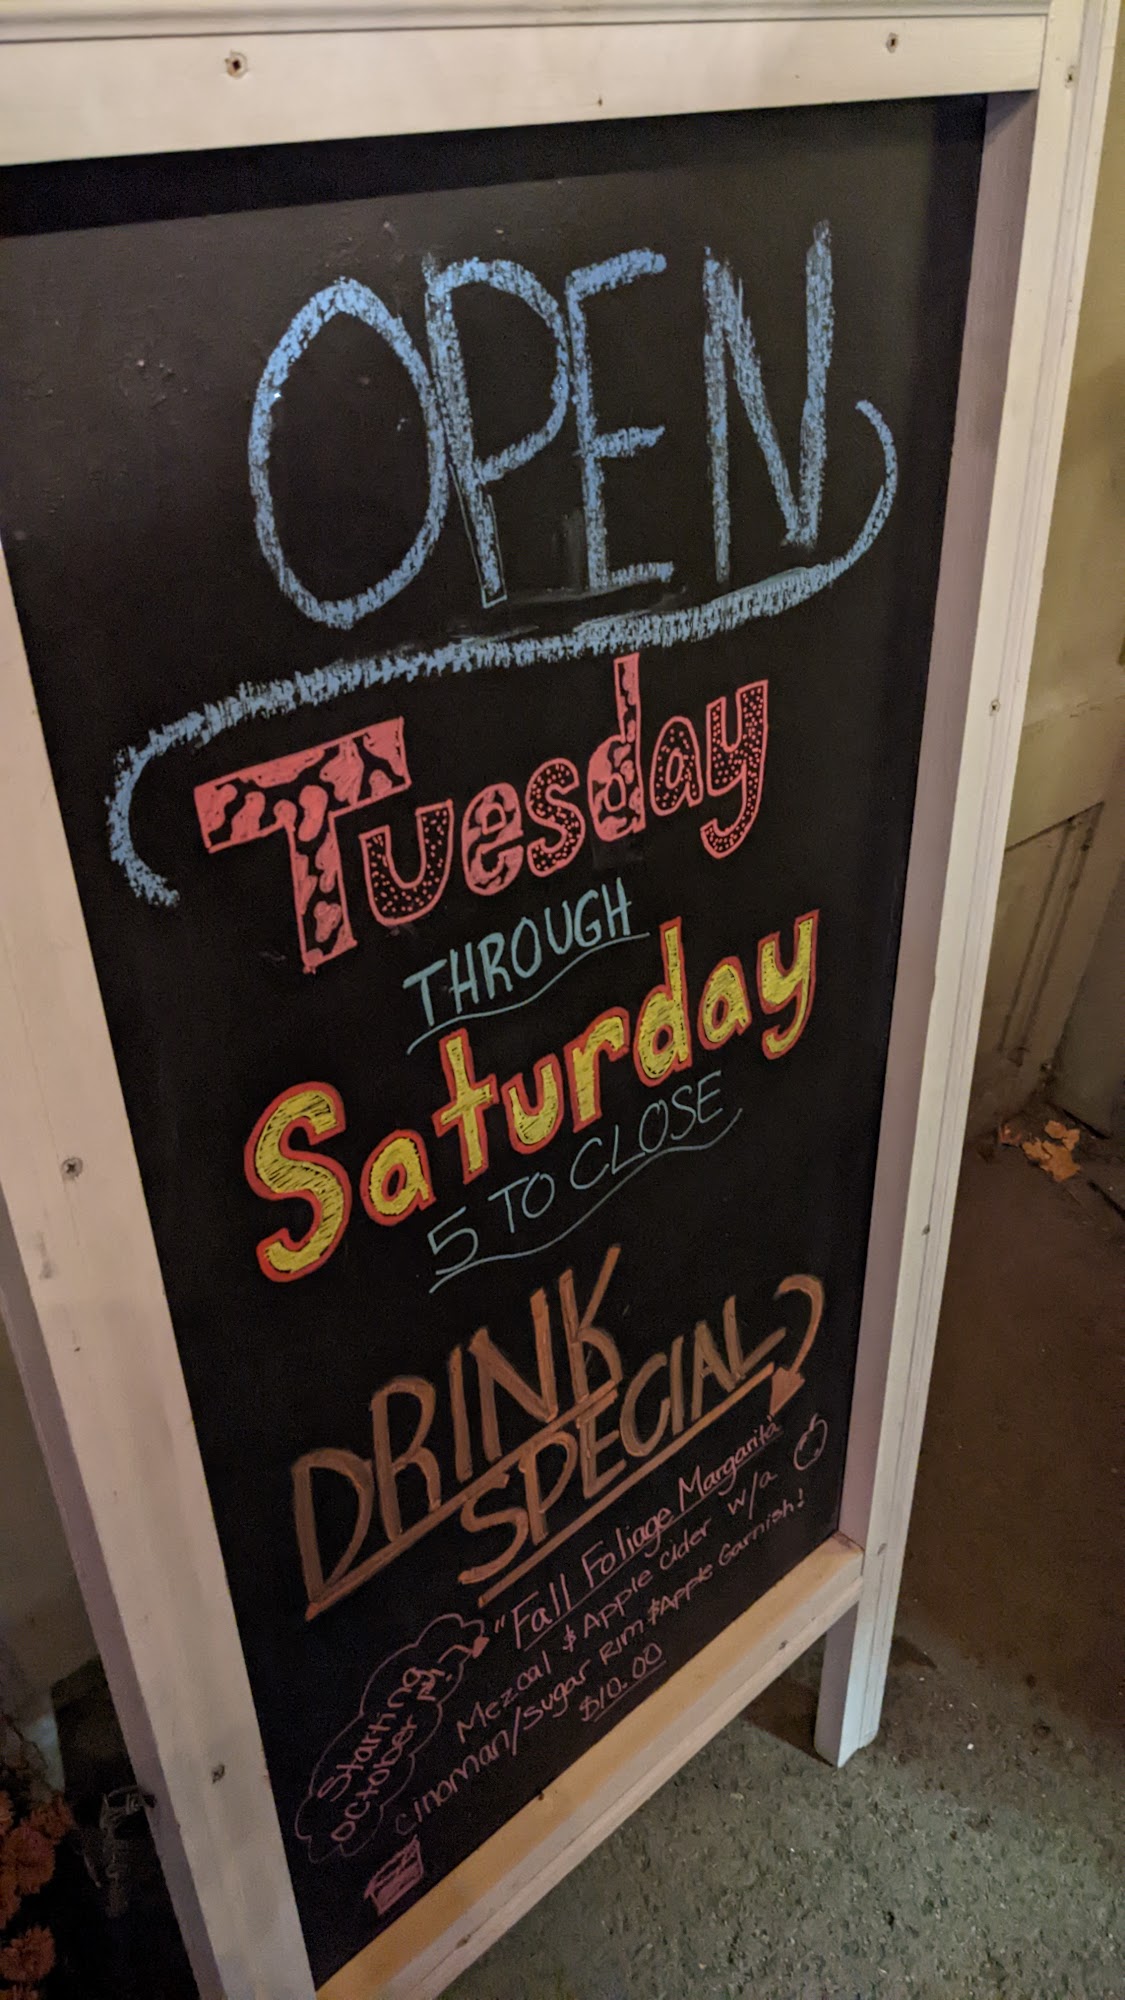 OPEN
Tuesday
THROUGH
Saturday
5 TO CLOSE
DRINK
SPECIAL
"Fall Foliage Margarita"
Mezcal & Apple Cider w/a
Cinoman/Sugar Rim & Apple Garnish!
$10.00
Starting
October